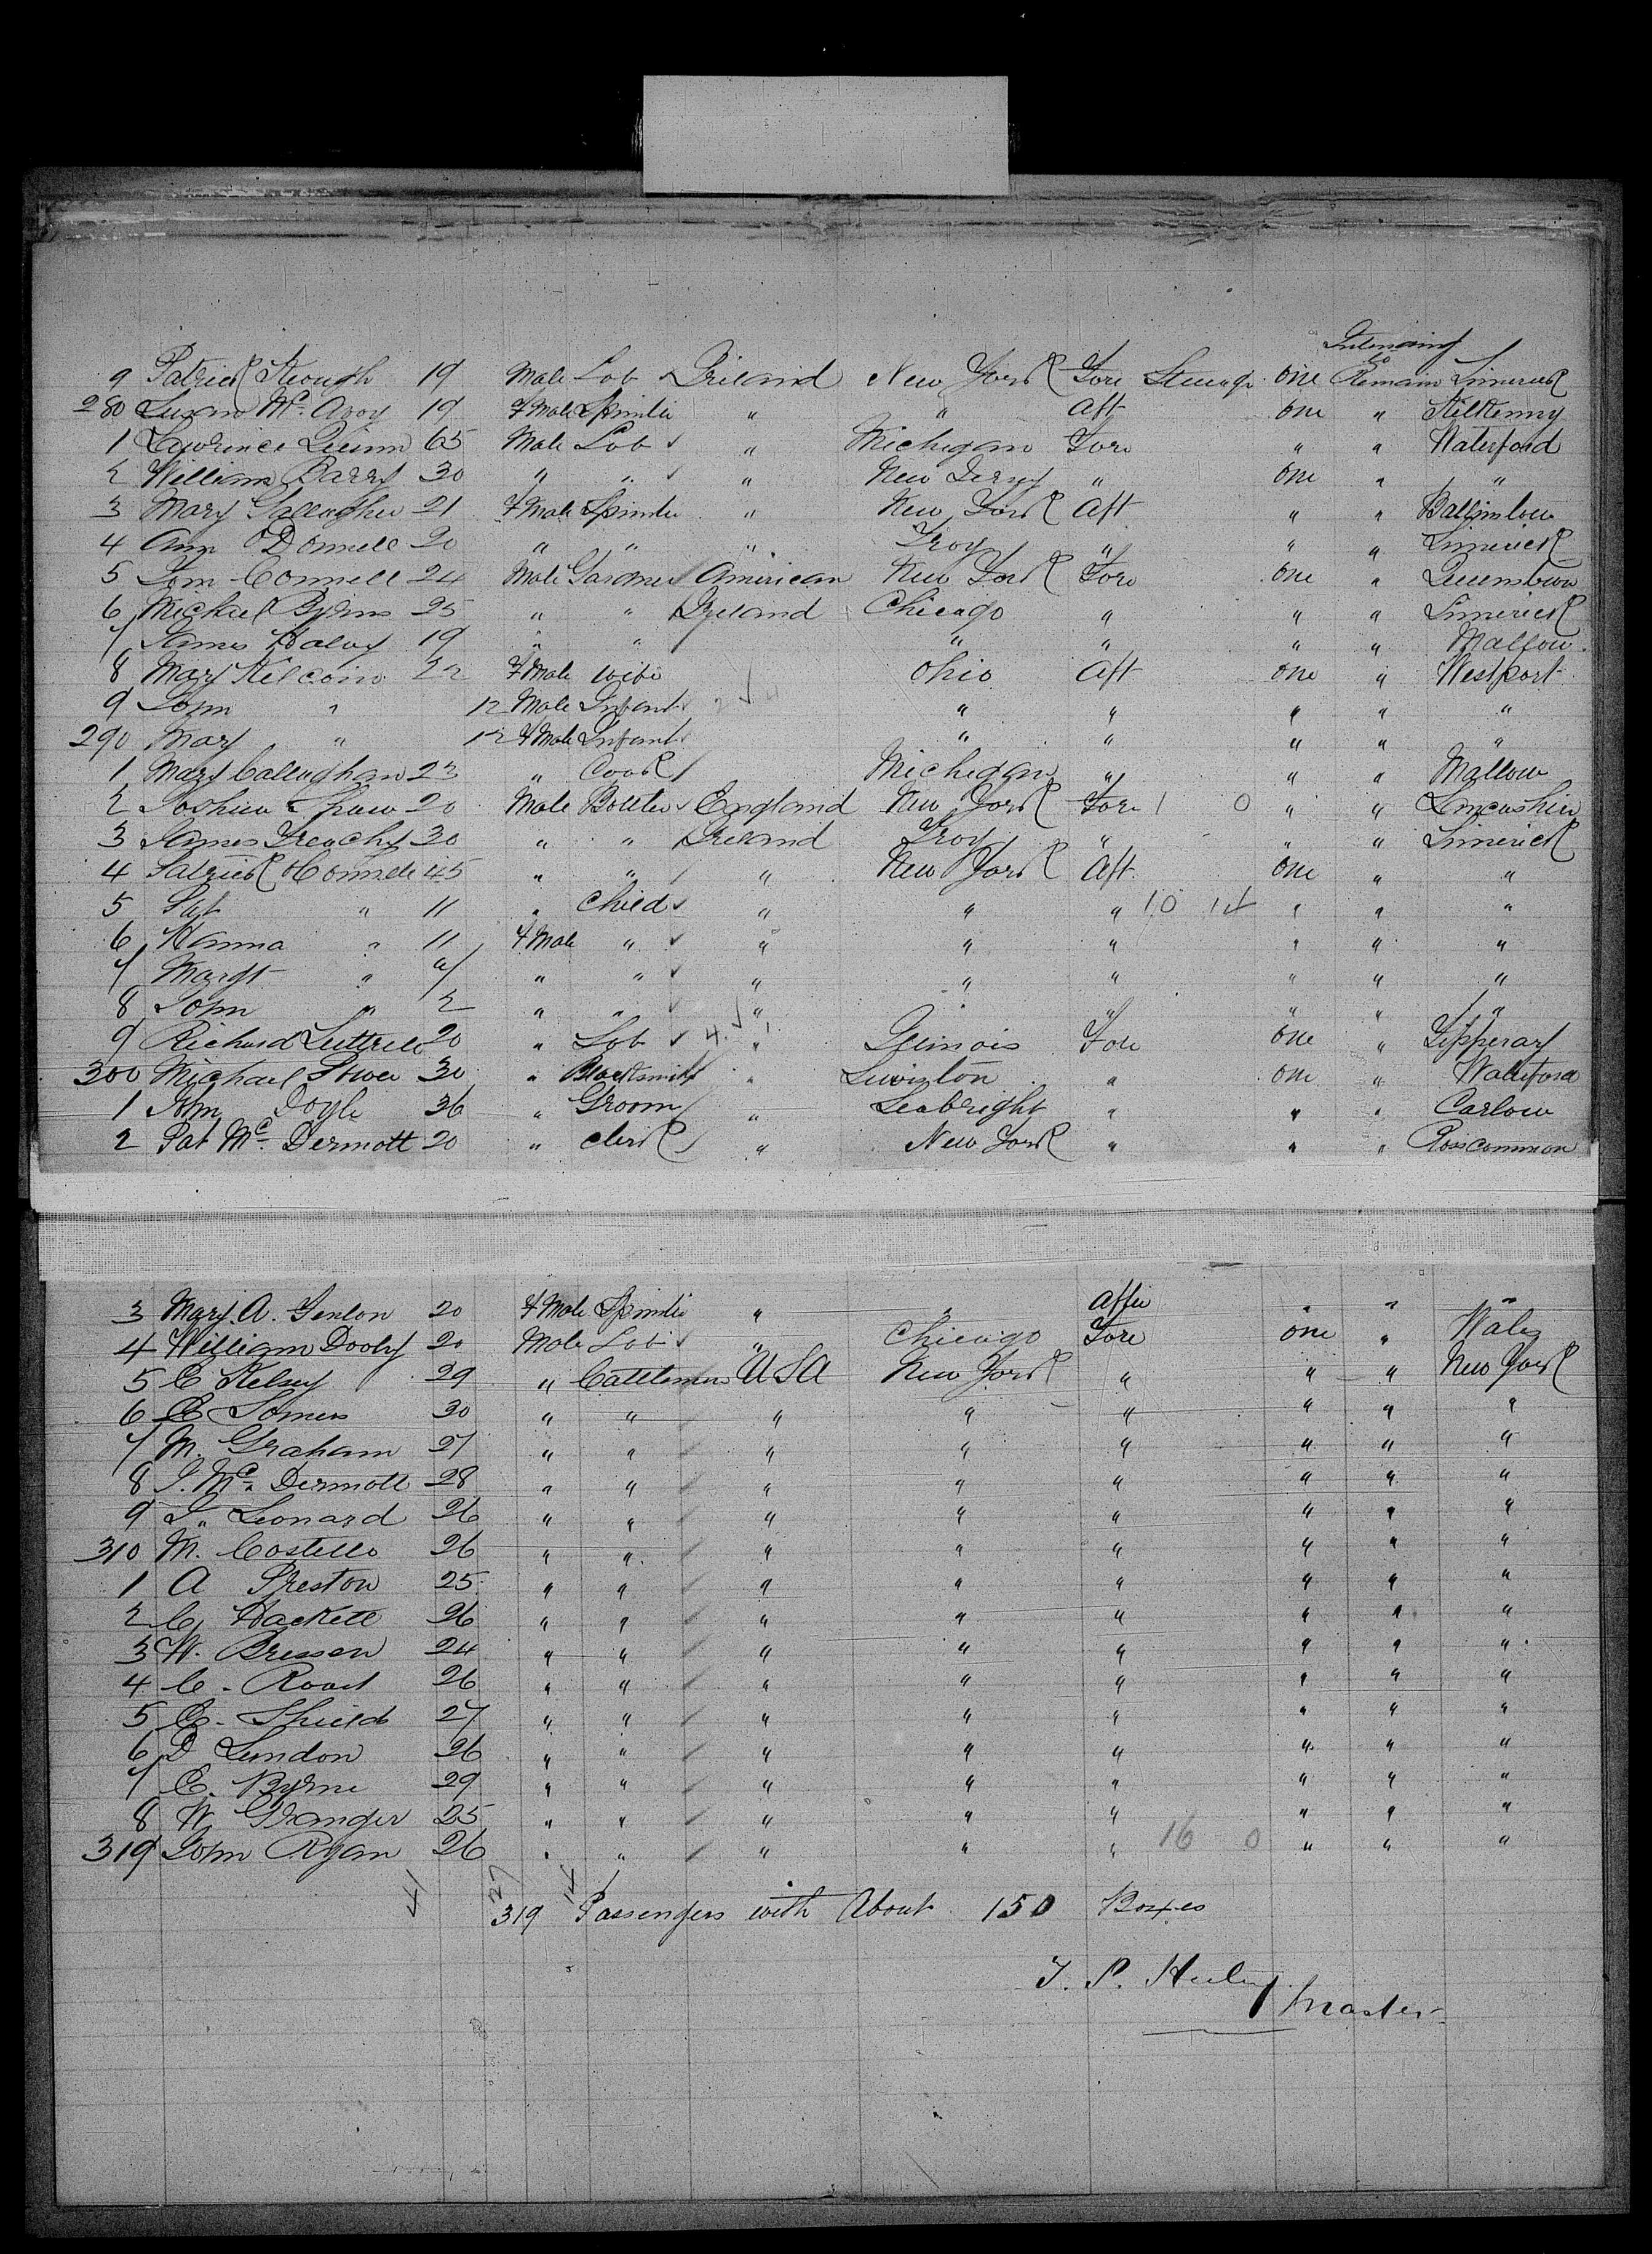 Intending
9 Patrick Keough 19 Male Lab Ireland New York Fore Steerage one to Remain Limerick
280 Susan Mc Avoy 19 F Male Spinster " " Aft one " Kilkenny
1 Lawrence Quinn 65 Male Lab " Michigan Fore " " Waterford
2 William Barry 30 " " " New Jersy " one " "
3 Mary Gallagher 21 F Male Spinster " New York Aft " "
4 Ann O Donnell 20 " " " Troy " " " Limerick
5 Tom Connell 24 Male Gardner American New York Fore one " Queenstown
6 Michael Byrns 25 " " Ireland Chicago " " " Limerick
7 James 19 " " " " " " Mallow
8 Mary 22 F Male wife Ohio Aft one " Westport
9 John " 12 Male Infant " " " " "
290 Mary " 12 F Male Infant " " " " "
1 Mary Callaghan 23 " Cook Michigan " " " Mallow
2 Joshua Shaw 20 Male England New York Fore 1 0 " " Lancashire
3 James Treachy 30 " " Ireland Troy " " " Limerick
4 Patrick 45 " " " New York Aft one " "
5 Pat " 11 " Child " " " 10 14 " " "
6 Hanna " 11 F Male " " " " " " "
7 Margt " 7 " " " " " " " "
8 John " 2 " " " " " " " "
9 Richard Luttrell 20 " Lab 4 " Illinois Fore one " Tipperary
300 Michael Power 30 " Blacksmith " Lewiston " one " Waterford
1 John Doyle 36 " Groom " Seabright " " " Carlow
2 Pat Mc Dermott 20 " Clerk " New York " " " Roscommon
3 Mary A. Fenlon 20 F Male Spinster " " After " " "
4 William Dooly 20 Male Lab " Chicago Fore one " Wales
5 C Kelsey 29 " Cattlemen USA New York " " " New York
6 Somers 30 " " " " " " " "
7 M. Graham 27 " " " " " " " "
8 J. Mc Dermott 28 " " " " " " " "
9 L. Leonard 26 " " " " " " " "
310 M. Costello 26 " " " " " " " "
1 A Preston 25 " " " " " " " "
2 C Hackett 26 " " " " " " " "
3 W. Bressen 24 " " " " " " " "
4 C. Road 26 " " " " " " " "
5 E. Shield 27 " " " " " " " "
6 D Lundon 26 " " " " " " " "
7 E. Byrne 29 " " " " " " " "
8 W. Granger 25 " " " " " " " "
319 John Ryan 26 " " " " " 16 0 " " "
41 27 14
319 Passengers with About 150 Boxes
T. P. Heeley
Master